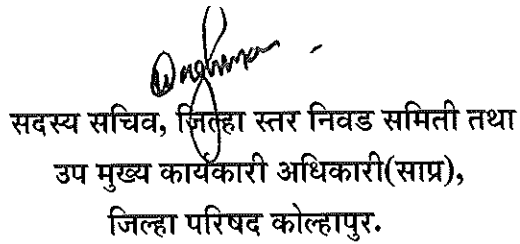 सदस्य सचिव, जिल्हा स्तर निवड समिती तथा
उप मुख्य कार्यकारी अधिकारी(साप्र),
जिल्हा परिषद कोल्हापुर.